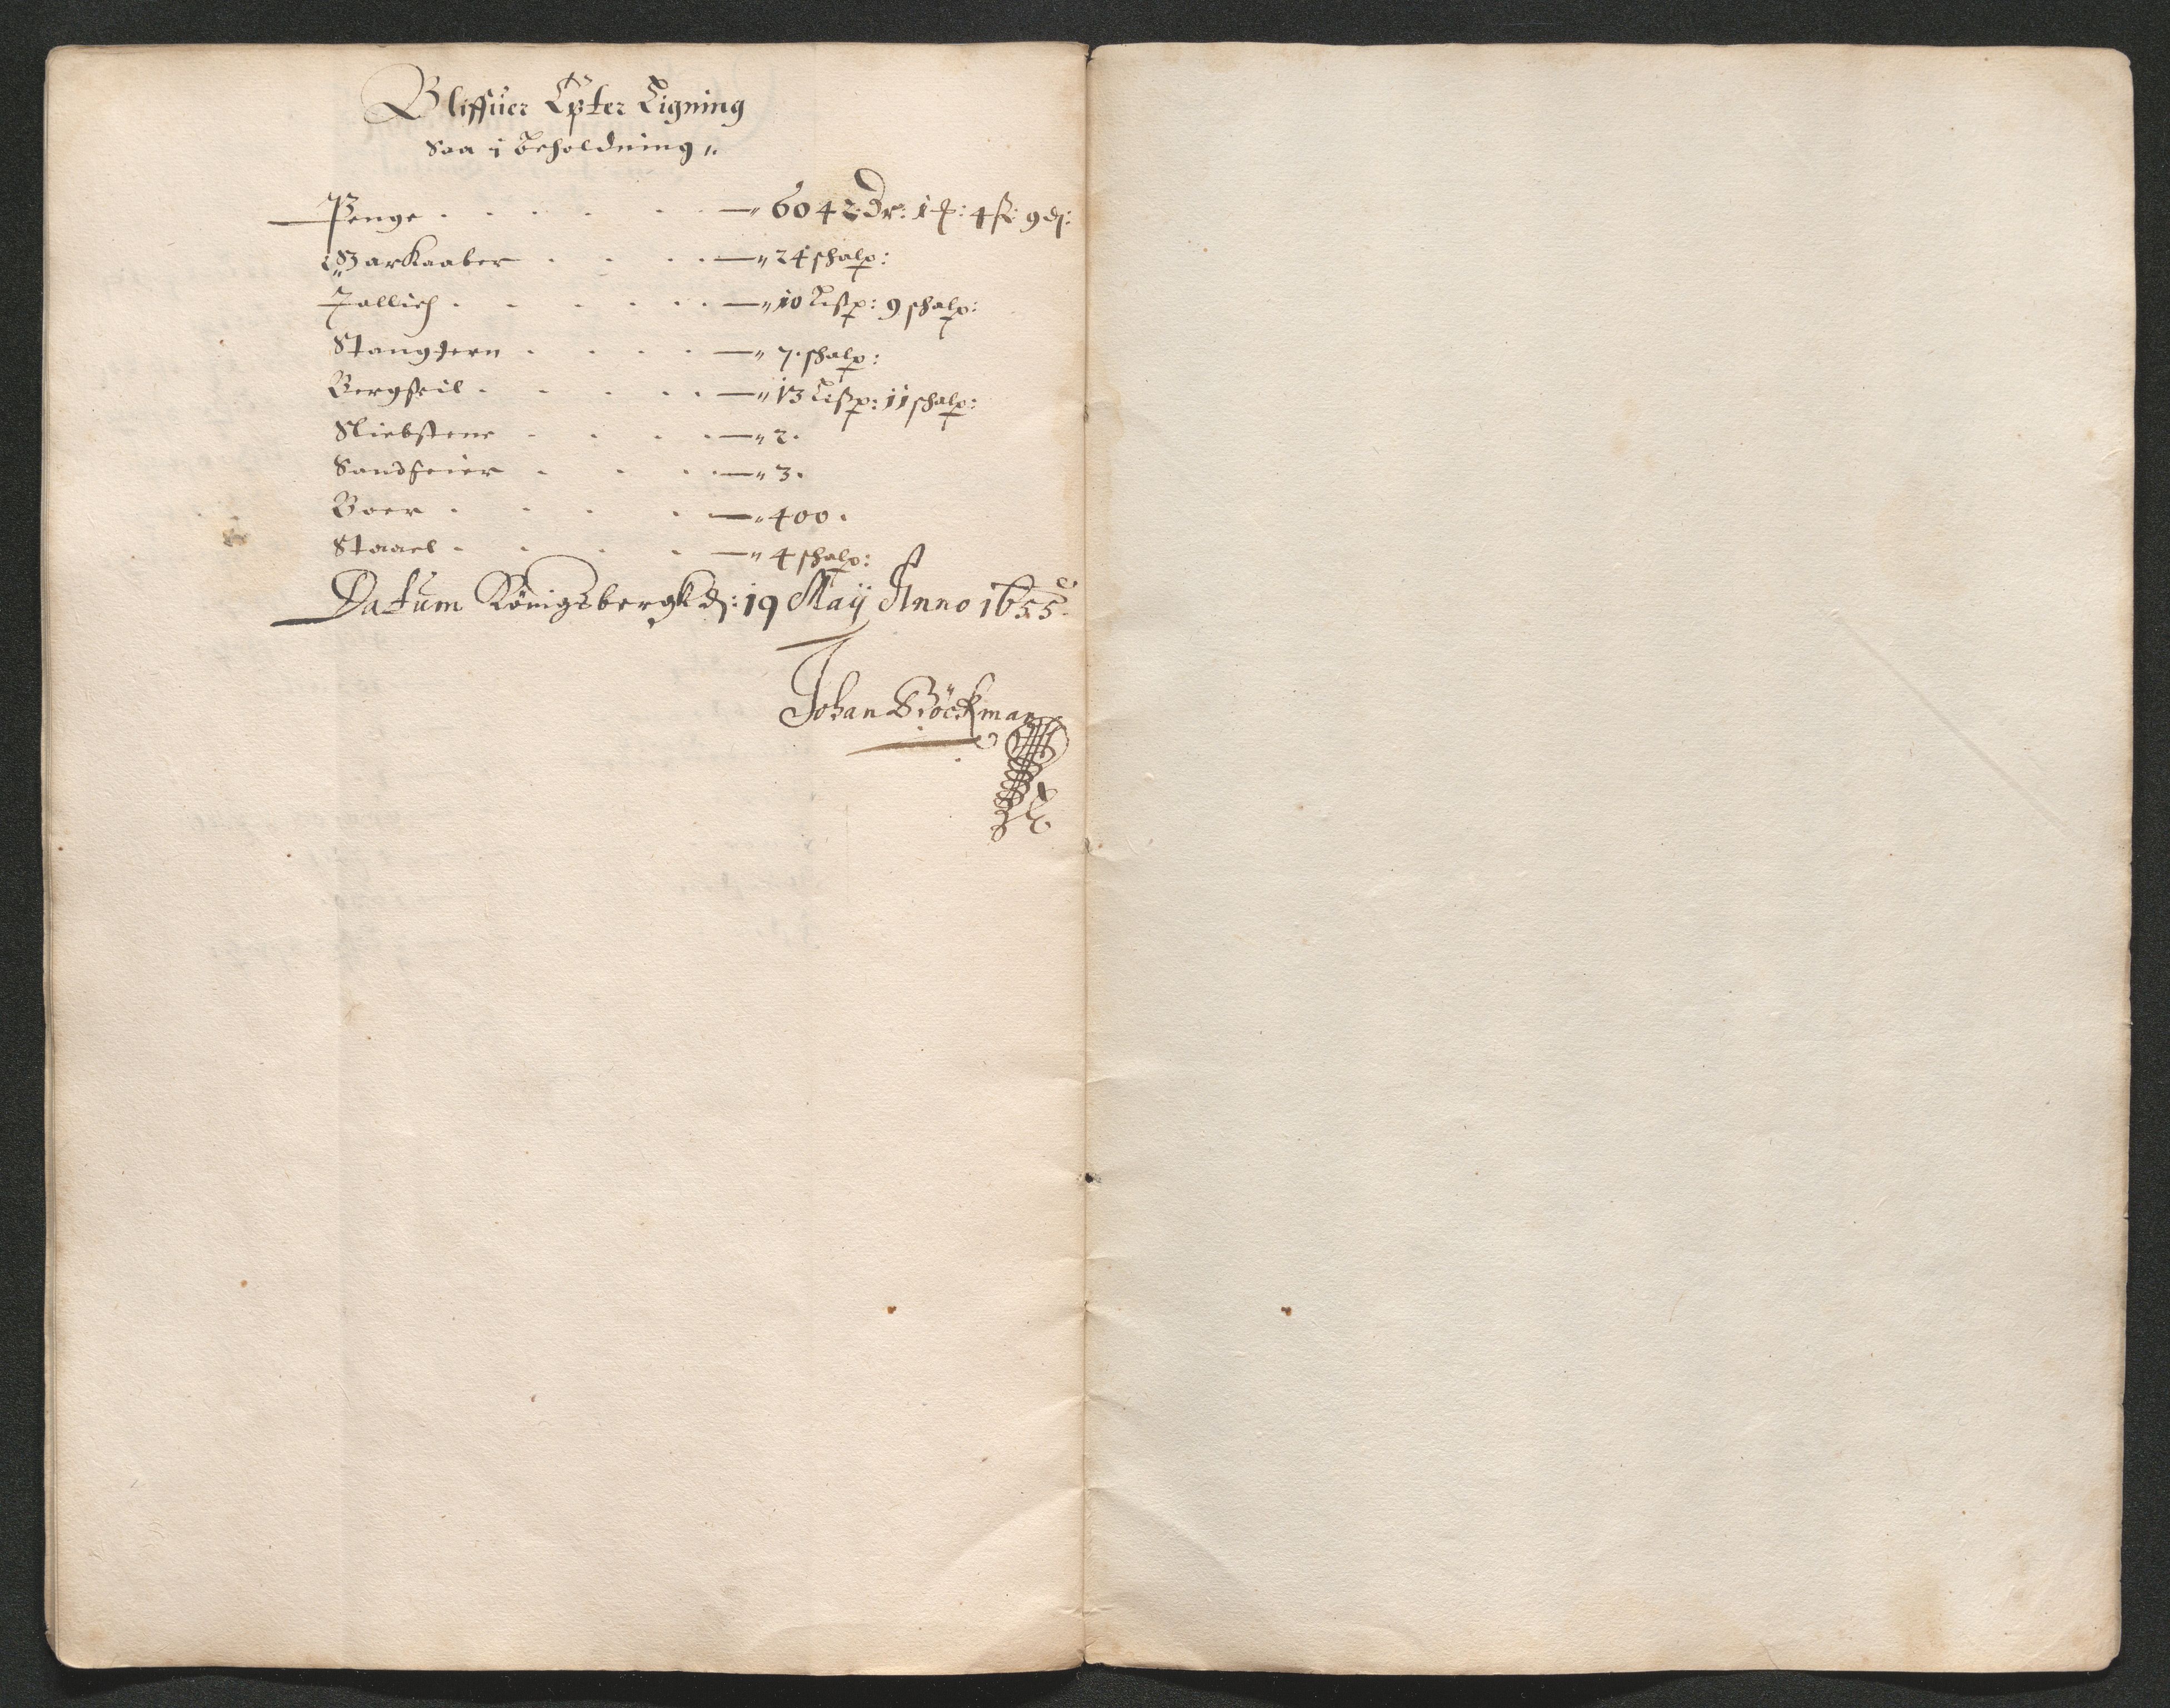 Bliffuer Epter Ligning
Saa i Beholdning"
Penge . . . . . . —" 6042 Dr: 1 ꝗ: 4 ß: 9 d:
Garkaaber . . . . —" 24 schalp:
Tallich . . . . . . —" 10 Lisp: 9 schalp:
Stangjern . . . . —" 7. schalp:
Bergseil . . . . . —" 13 Lisp: 11 schalp:
Sliebstene . . . . —" 2.
. . . . —" 3.
. . . . —" 400.
Staael . . . . —" 4 schalp:
Datum Königsbergk d: 19 Maÿ Anno 1655.
Johan Böckman